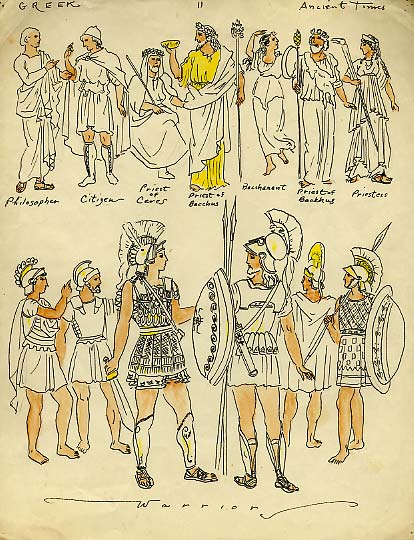 GREEK
11
Ancient Times
Philosopher
Citizen
Priest
of
Ceres
Priest of
Bacchus
Bacchanant
Priest of
Backhus
Priestess
Warrior